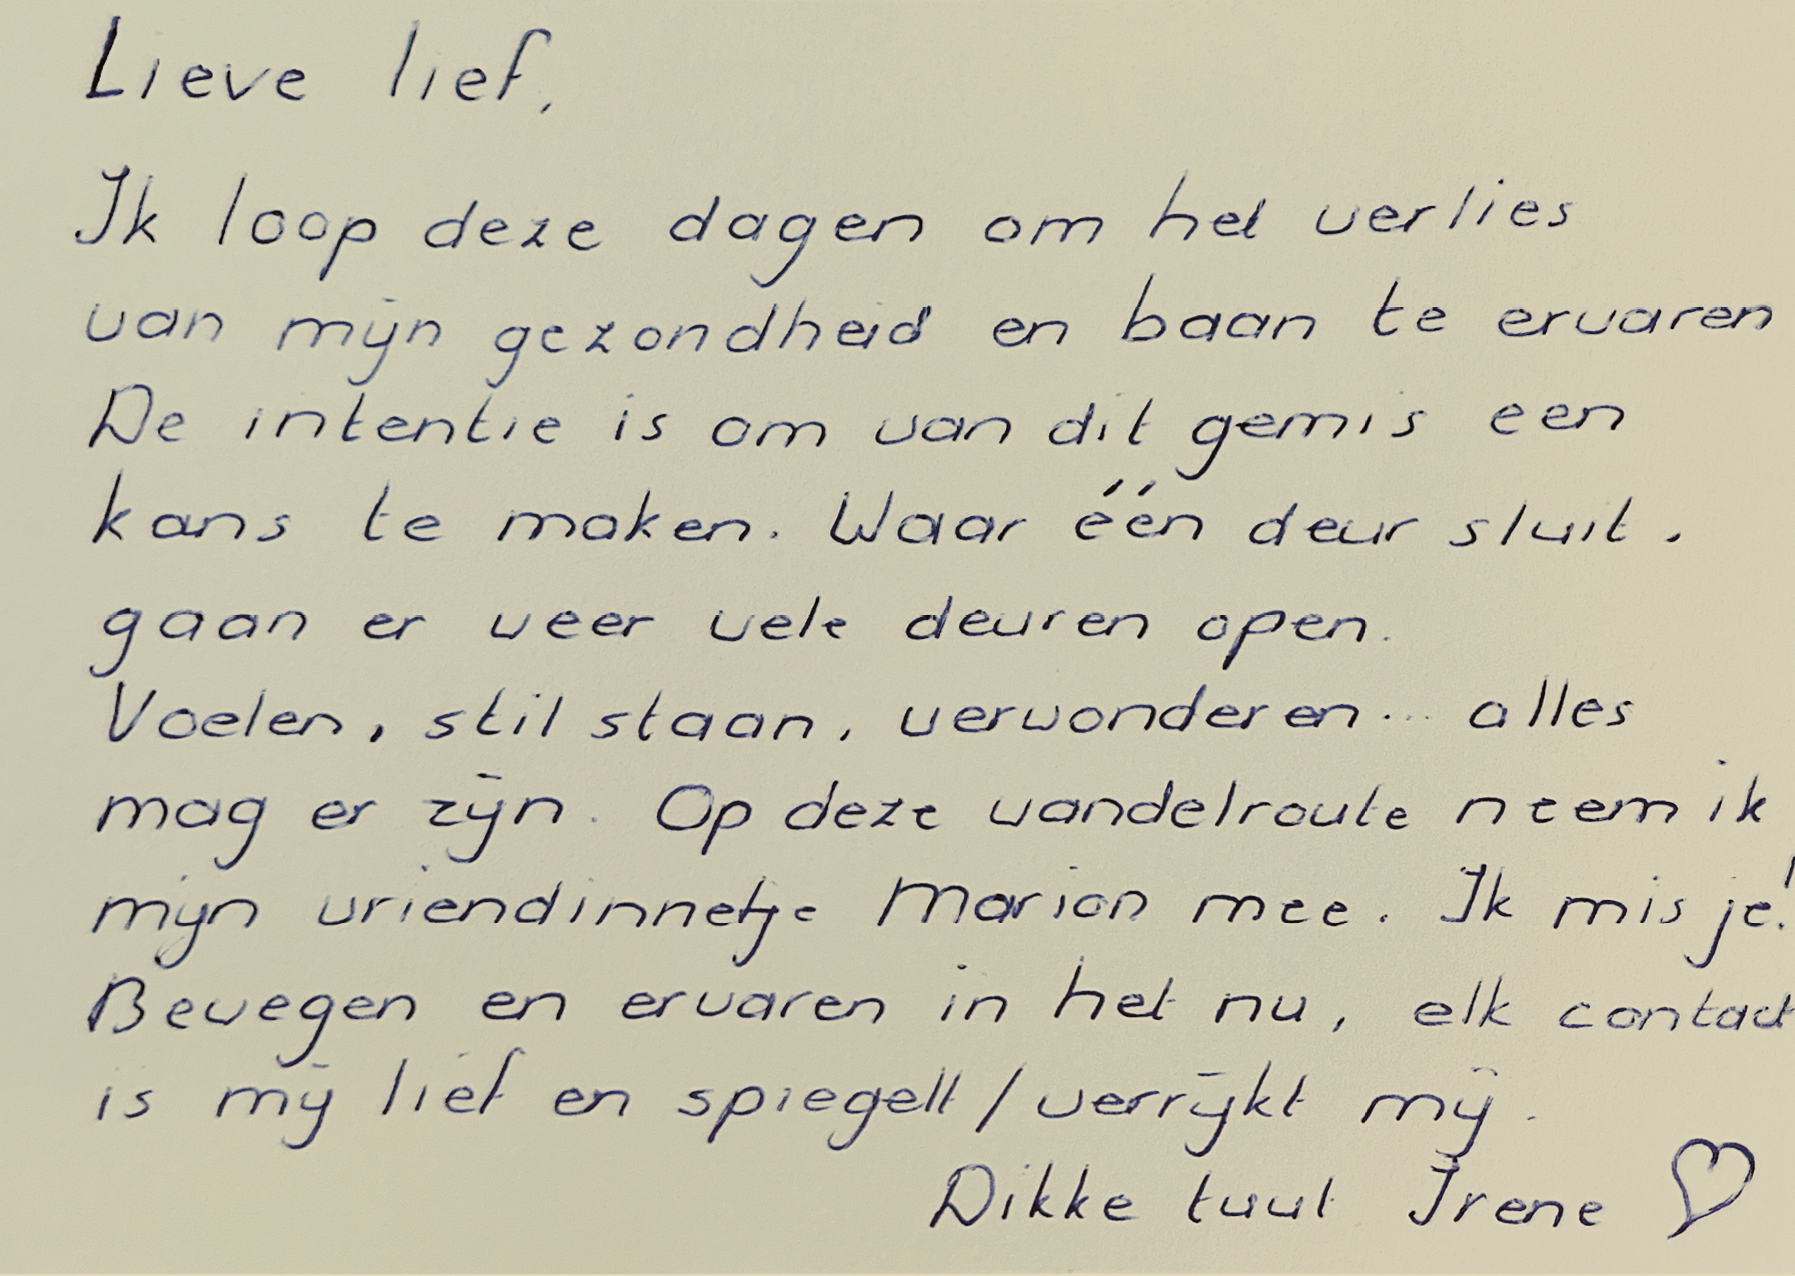 Lieve lief,
Ik loop deze dagen om het verlies
van mijn gezondheid en baan te ervaren
De intentie is om van dit gemis een
kans te maken. Waar één deur sluit,
gaan er weer vele deuren open.
Voelen, stil staan, verwonderen... alles
mag er zijn. Op deze wandelroute neem ik
mijn vriendinnetje Marion mee. Ik mis je!
Bewegen en ervaren in het nu, elk contact
is mij lief en spiegelt / verrijkt mij.
Dikke tuut Irene